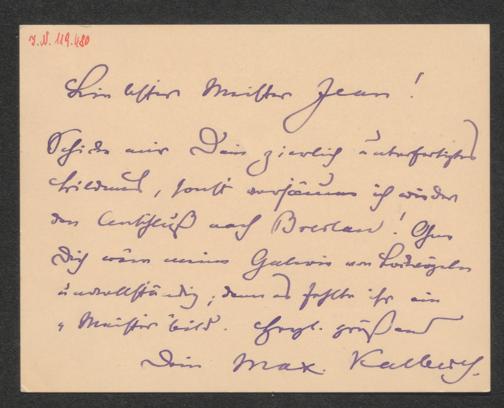 J.N. 119.480
Meister Jean!
Schicke mir Dein zierlich unterfertigtes
Bildniß, sonst versäume ich wieder
den Anschluß nach Breslau! Ohne
Dich wäre meine Galerie von
unvollständig; denn es fehlte ihr ein
"Meister"bild. grüßend
Dein Max Kalbeck.